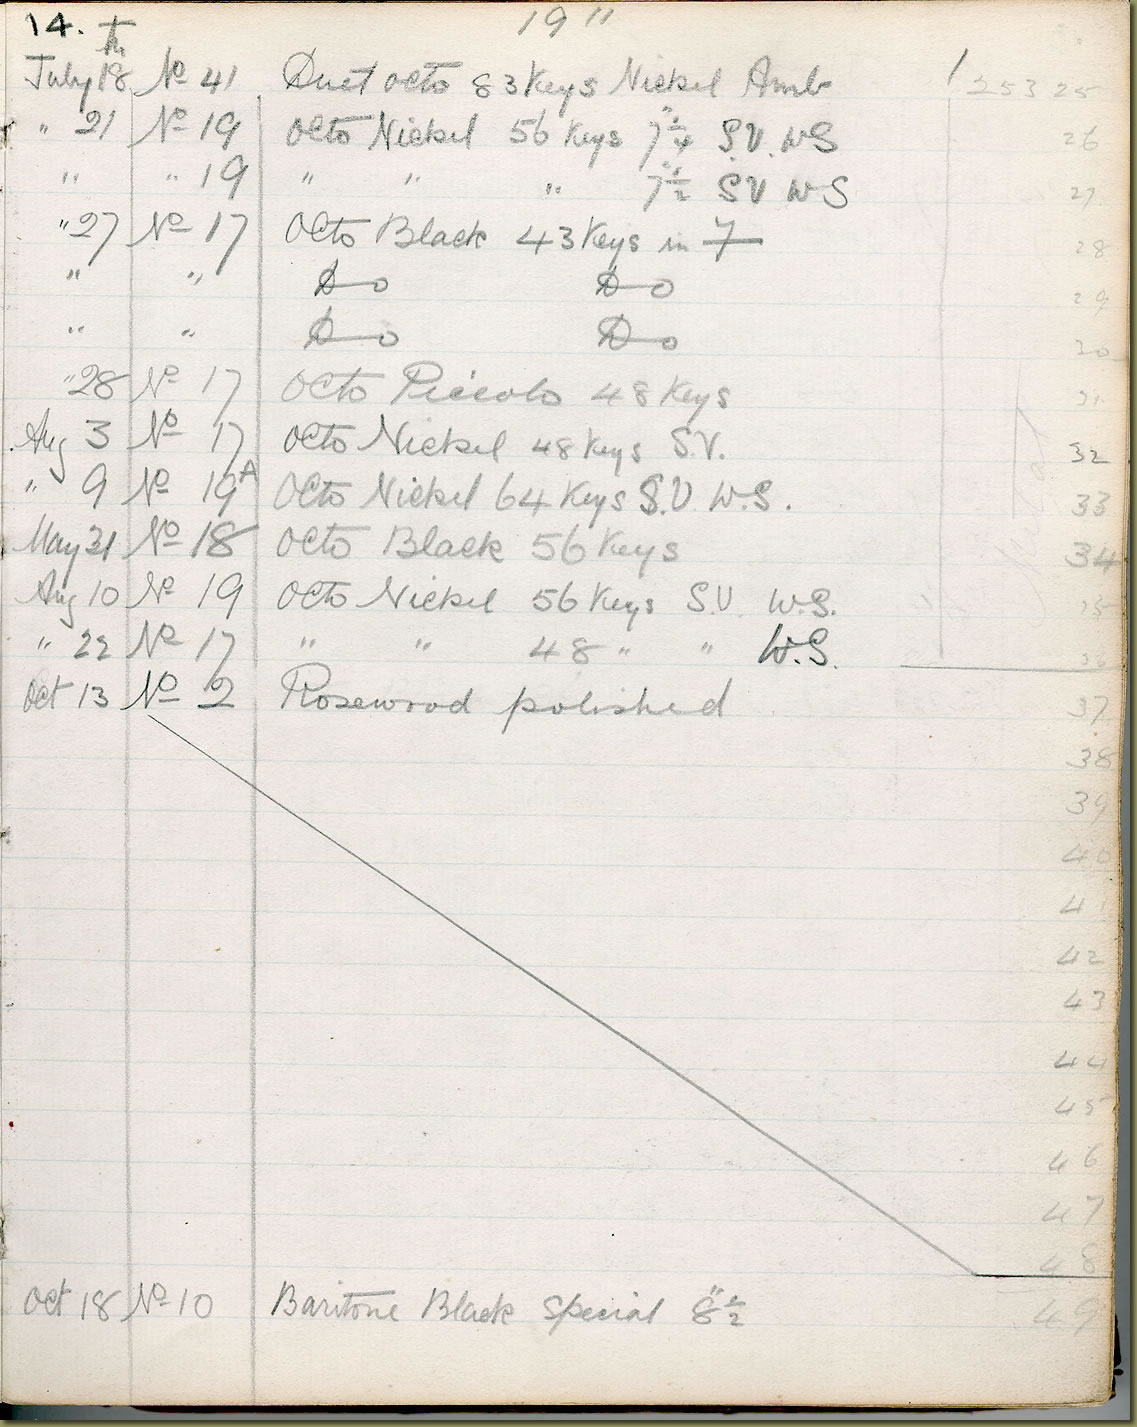 14. 19"
July 18th No 41 Duet Octo 83 Keys Nickel Amb 25325
" 21 No 19 Octo Nickel 56 Keys 7"¼ S.V. W S 26
" " 19 " " " 7"½ S V W S 27
" 27 No 17 Octo Black 43 Keys in 7 28
" " Do Do 29
" " Do Do 30
" 28 No 17 Octo Piccolo 48 Keys 31
Aug 3 No 17 Octo Nickel 48 Keys S.V. 32
" 9 No 19A Octo Nickel 64 Keys S.V. W.S. 33
May 31 No 18 Octo Black 56 Keys 34
Aug 10 No 19 Octo Nickel 56 Keys S.V. W.S. 35
" 22 No 17 " " 48 " " W.S. 36
Oct 13 No 2 Rosewood polished 37
38
39
40
41
42
43
44
45
46
47
48
Oct 18 No 10 Baritone Black Special 8"½ 49